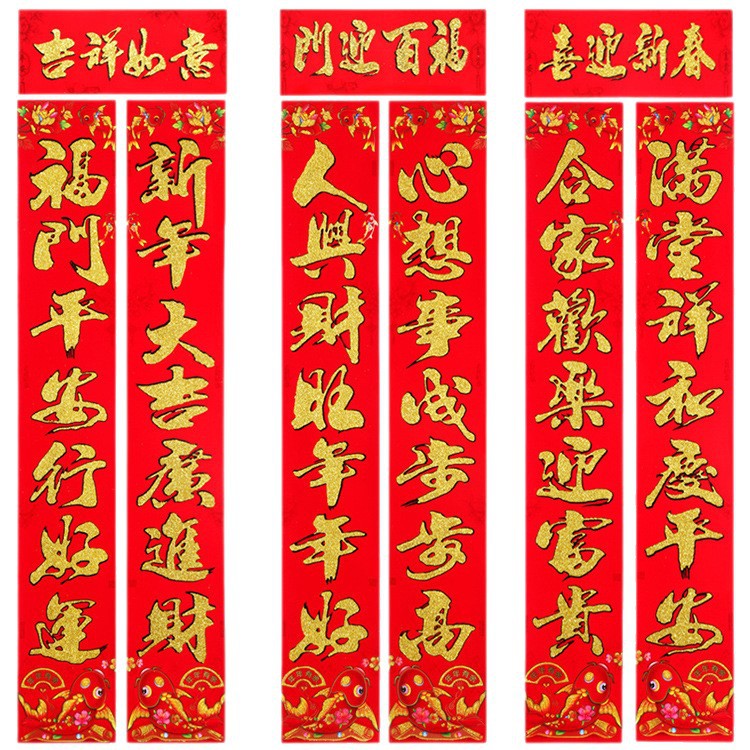 吉祥如意
福門平安行好運
新年大吉廣進財
門迎百福
人興財旺年年好
心想事成步步高
喜迎新春
合家歡樂迎富貴
滿堂祥和慶平安